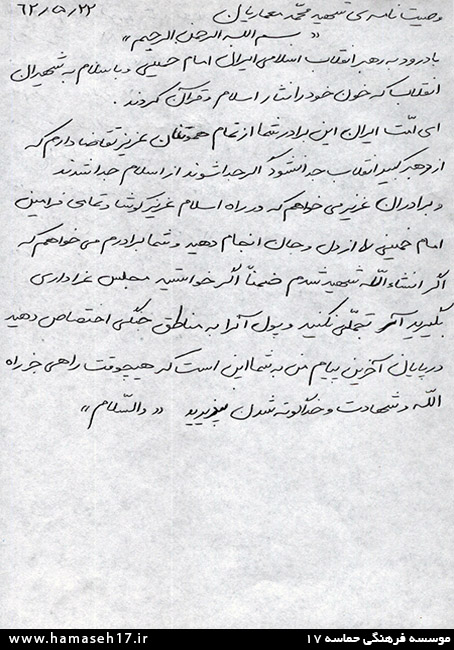 وصیت نامه ی شهید محمد معماریان ۶۲/۵/۲۲
« بسم الله الرحمن الرحیم »
با درود به رهبر انقلاب اسلامی ایران امام خمینی و با سلام به شهیدان
انقلاب که خون خود را نثار اسلام و قرآن کردند .
ای ملت ایران این برادر شما از تمام هموطنان عزیز تقاضا دارم که
از رهبر کبیر انقلاب جدا نشوند اگر جدا شوند از اسلام جدا شدند
و برادران عزیز می خواهم که در راه اسلام عزیز کوشا و تمامی فرامین
امام خمینی را از دل و جان انجام دهید و شما برادرم می خواهم که
اگر انشاءالله شهید شدم ضمناً اگر خواستید مجلس عزاداری
بگیرید تجملّی نکنید و پول آنرا به مناطق جنگی اختصاص دهید
در پایان آخرین پیام من به شما این است که هیچوقت راهی جز راه
الله و شهادت و خداگونه شدن نپذیرید « والسّلام »
www.hamaseh17.ir موسسه فرهنگی حماسه ۱۷